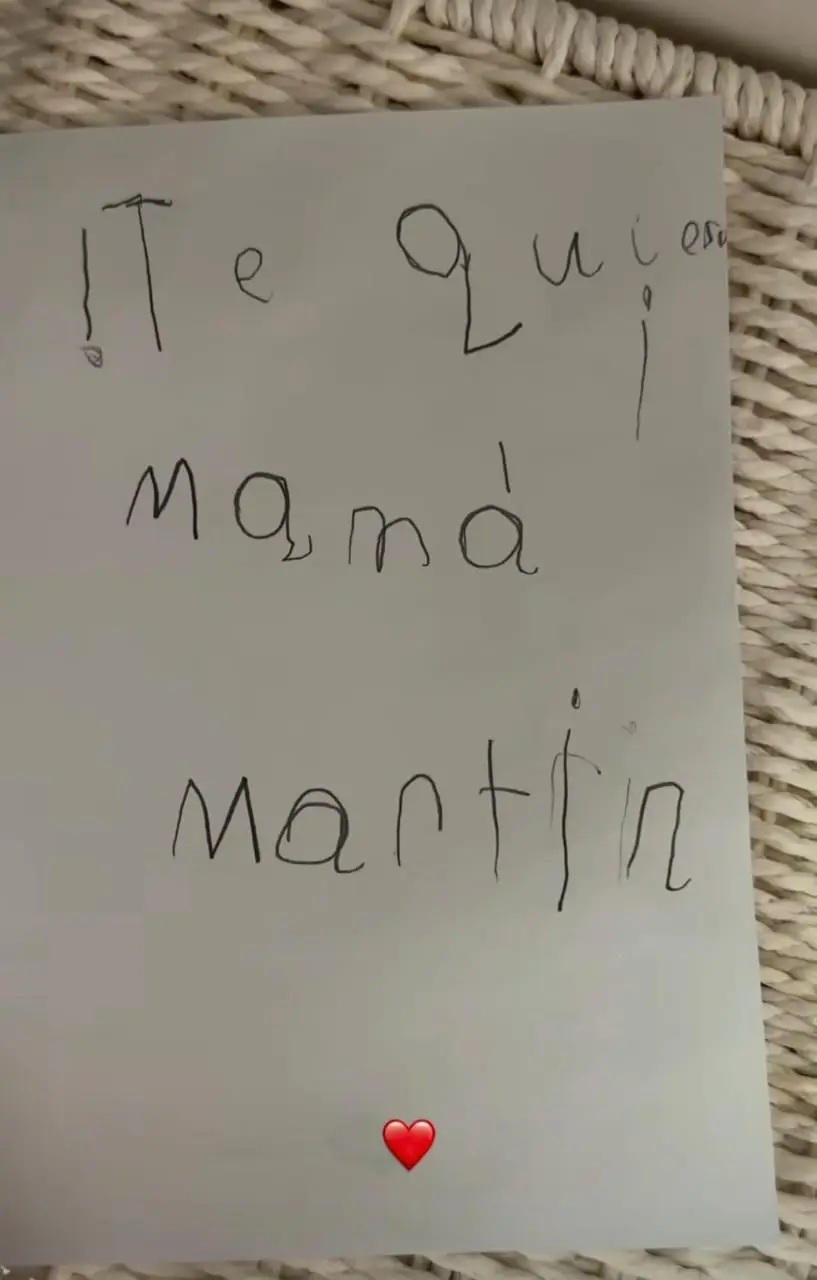 !Te quiero
¡
Mamá
Martín